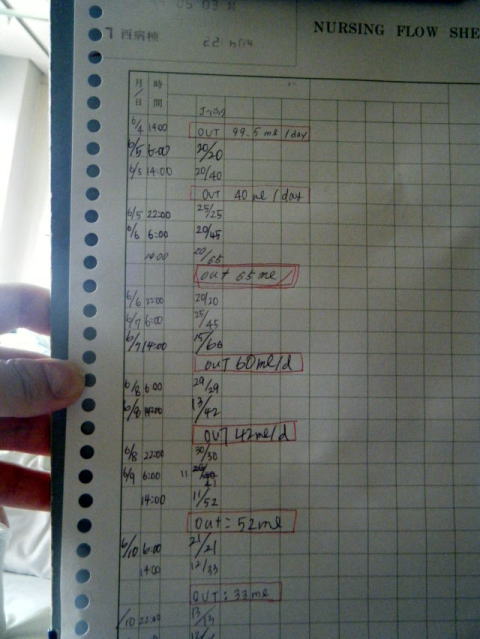 7 西病棟
NURSING FLOW SHE
月/日 時間
6/4 14:00 OUT 99.5 ml /day
6/5 6:00 20/20
6/5 14:00 20/40
OUT 40 ml /day
6/5 22:00 25/25
6/6 6:00 20/45
14:00 20/65
out 65 ml/
6/6 22:00 20/20
6/7 6:00 25/45
6/7 14:00 15/60
OUT 60ml/d
6/8 6:00 29/29
6/8 13/42
OUT 42ml/d
6/8 22:00 30/30
6/9 6:00 11
14:00 11/52
Out: 52ml
6/10 6:00 21/21
14:00 12/33
OUT: 33ml
/10 22:00 13/13